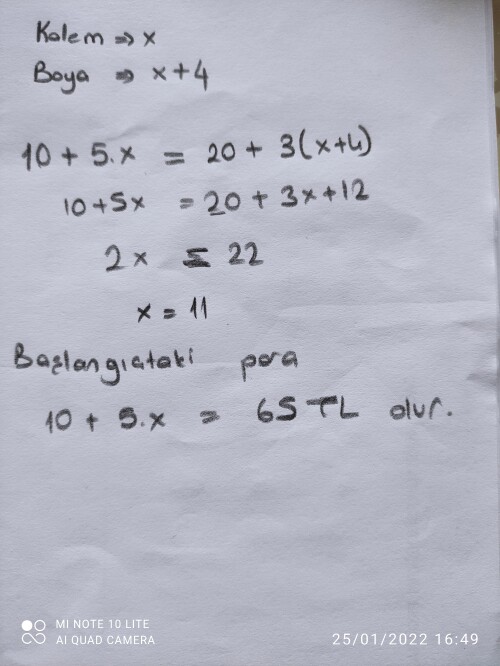 Kalem => x
Boya => x+4
10 + 5.x = 20 + 3(x+4)
10+5x = 20 + 3x+12
2x = 22
x = 11
Başlangıçtaki para
10 + 5.x = 65 TL olur.
MI NOTE 10 LITE
AI QUAD CAMERA
25/01/2022 16:49